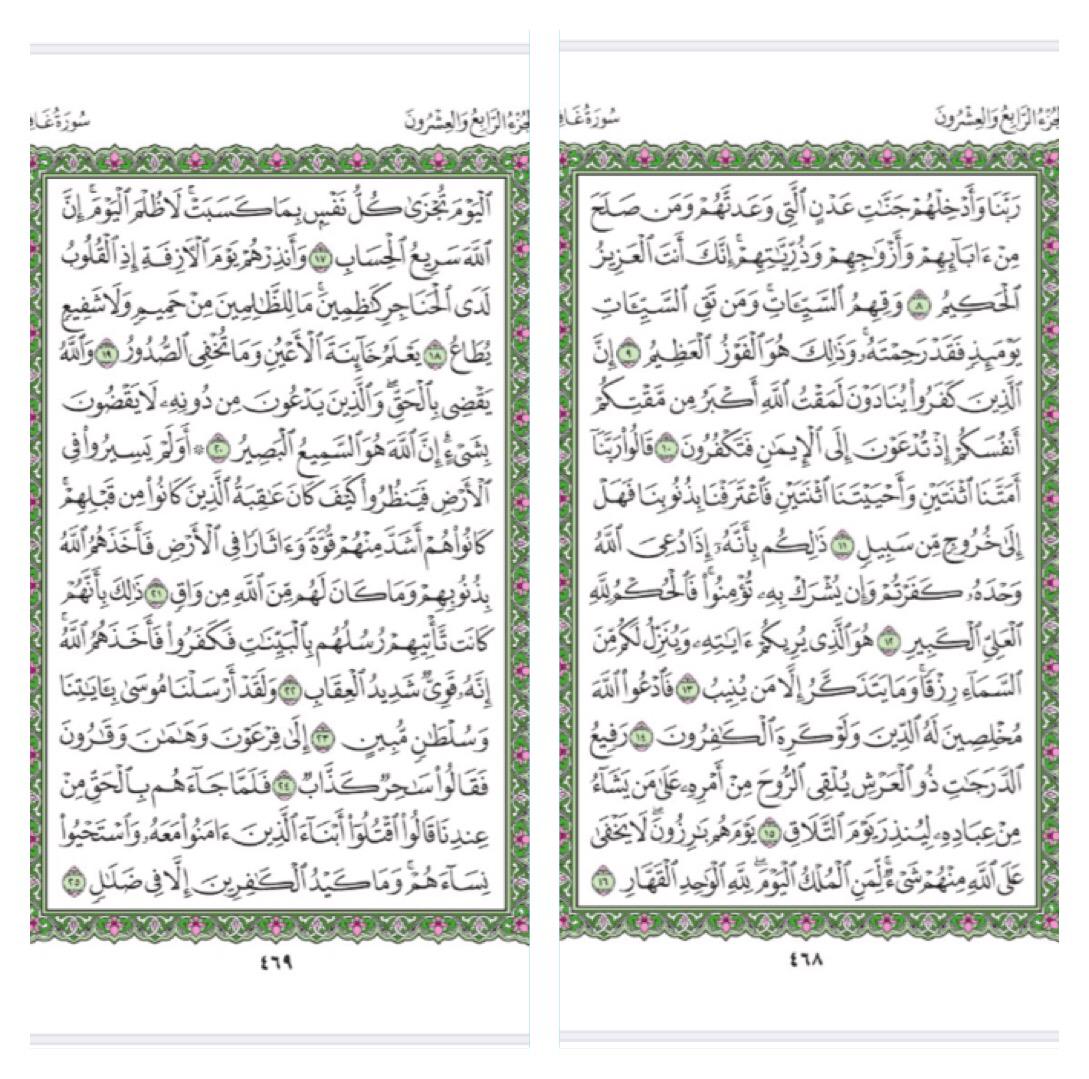 الجزء الرابع والعشرون
سورة غاف
رَبَّنَا وَأَدْخِلْهُمْ جَنَّٰتِ عَدْنٍ ٱلَّتِى وَعَدتَّهُمْ وَمَن صَلَحَ
مِنْ ءَابَآئِهِمْ وَأَزْوَٰجِهِمْ وَذُرِّيَّٰتِهِمْ ۚ إِنَّكَ أَنتَ ٱلْعَزِيزُ
ٱلْحَكِيمُ ٨ وَقِهِمُ ٱلسَّيِّـَٔاتِ ۚ وَمَن تَقِ ٱلسَّيِّـَٔاتِ
يَوْمَئِذٍ فَقَدْ رَحِمْتَهُۥ ۚ وَذَٰلِكَ هُوَ ٱلْفَوْزُ ٱلْعَظِيمُ ٩ إِنَّ
ٱلَّذِينَ كَفَرُوا۟ يُنَادَوْنَ لَمَقْتُ ٱللَّهِ أَكْبَرُ مِن مَّقْتِكُمْ
أَنفُسَكُمْ إِذْ تُدْعَوْنَ إِلَى ٱلْإِيمَٰنِ فَتَكْفُرُونَ ١٠ قَالُوا۟ رَبَّنَآ
أَمَتَّنَا ٱثْنَتَيْنِ وَأَحْيَيْتَنَا ٱثْنَتَيْنِ فَٱعْتَرَفْنَا بِذُنُوبِنَا فَهَلْ
إِلَىٰ خُرُوجٍ مِّن سَبِيلٍ ١١ ذَٰلِكُم بِأَنَّهُۥٓ إِذَا دُعِىَ ٱللَّهُ
وَحْدَهُۥ كَفَرْتُمْ ۖ وَإِن يُشْرَكْ بِهِۦ تُؤْمِنُوا۟ ۚ فَٱلْحُكْمُ لِلَّهِ
ٱلْعَلِىِّ ٱلْكَبِيرِ ١٢ هُوَ ٱلَّذِى يُرِيكُمْ ءَايَٰتِهِۦ وَيُنَزِّلُ لَكُم مِّنَ
ٱلسَّمَآءِ رِزْقًا ۚ وَمَا يَتَذَكَّرُ إِلَّا مَن يُنِيبُ ١٣ فَٱدْعُوا۟ ٱللَّهَ
مُخْلِصِينَ لَهُ ٱلدِّينَ وَلَوْ كَرِهَ ٱلْكَٰفِرُونَ ١٤ رَفِيعُ
ٱلدَّرَجَٰتِ ذُو ٱلْعَرْشِ يُلْقِى ٱلرُّوحَ مِنْ أَمْرِهِۦ عَلَىٰ مَن يَشَآءُ
مِنْ عِبَادِهِۦ لِيُنذِرَ يَوْمَ ٱلتَّلَاقِ ١٥ يَوْمَ هُم بَٰرِزُونَ ۖ لَا يَخْفَىٰ
عَلَى ٱللَّهِ مِنْهُمْ شَىْءٌ ۚ لِّمَنِ ٱلْمُلْكُ ٱلْيَوْمَ ۖ لِلَّهِ ٱلْوَٰحِدِ ٱلْقَهَّارِ ١٦
٤٦٨
الجزء الرابع والعشرون
سورة غاف
ٱلْيَوْمَ تُجْزَىٰ كُلُّ نَفْسٍۭ بِمَا كَسَبَتْ ۚ لَا ظُلْمَ ٱلْيَوْمَ ۚ إِنَّ
ٱللَّهَ سَرِيعُ ٱلْحِسَابِ ١٧ وَأَنذِرْهُمْ يَوْمَ ٱلْءَازِفَةِ إِذِ ٱلْقُلُوبُ
لَدَى ٱلْحَنَاجِرِ كَٰظِمِينَ ۚ مَا لِلظَّٰلِمِينَ مِنْ حَمِيمٍ وَلَا شَفِيعٍ
يُطَاعُ ١٨ يَعْلَمُ خَآئِنَةَ ٱلْأَعْيُنِ وَمَا تُخْفِى ٱلصُّدُورُ ١٩ وَٱللَّهُ
يَقْضِى بِٱلْحَقِّ ۖ وَٱلَّذِينَ يَدْعُونَ مِن دُونِهِۦ لَا يَقْضُونَ
بِشَىْءٍ ۗ إِنَّ ٱللَّهَ هُوَ ٱلسَّمِيعُ ٱلْبَصِيرُ ٢٠ ۞ أَوَلَمْ يَسِيرُوا۟ فِى
ٱلْأَرْضِ فَيَنظُرُوا۟ كَيْفَ كَانَ عَٰقِبَةُ ٱلَّذِينَ كَانُوا۟ مِن قَبْلِهِمْ ۚ
كَانُوا۟ هُمْ أَشَدَّ مِنْهُمْ قُوَّةً وَءَاثَارًا فِى ٱلْأَرْضِ فَأَخَذَهُمُ ٱللَّهُ
بِذُنُوبِهِمْ وَمَا كَانَ لَهُم مِّنَ ٱللَّهِ مِن وَاقٍ ٢١ ذَٰلِكَ بِأَنَّهُمْ
كَانَت تَّأْتِيهِمْ رُسُلُهُم بِٱلْبَيِّنَٰتِ فَكَفَرُوا۟ فَأَخَذَهُمُ ٱللَّهُ ۚ
إِنَّهُۥ قَوِىٌّ شَدِيدُ ٱلْعِقَابِ ٢٢ وَلَقَدْ أَرْسَلْنَا مُوسَىٰ بِـَٔايَٰتِنَا
وَسُلْطَٰنٍ مُّبِينٍ ٢٣ إِلَىٰ فِرْعَوْنَ وَهَٰمَٰنَ وَقَٰرُونَ
فَقَالُوا۟ سَٰحِرٌ كَذَّابٌ ٢٤ فَلَمَّا جَآءَهُم بِٱلْحَقِّ مِنْ
عِندِنَا قَالُوا۟ ٱقْتُلُوٓا۟ أَبْنَآءَ ٱلَّذِينَ ءَامَنُوا۟ مَعَهُۥ وَٱسْتَحْيُوا۟
نِسَآءَهُمْ ۚ وَمَا كَيْدُ ٱلْكَٰفِرِينَ إِلَّا فِى ضَلَٰلٍ ٢٥
٤٦٩